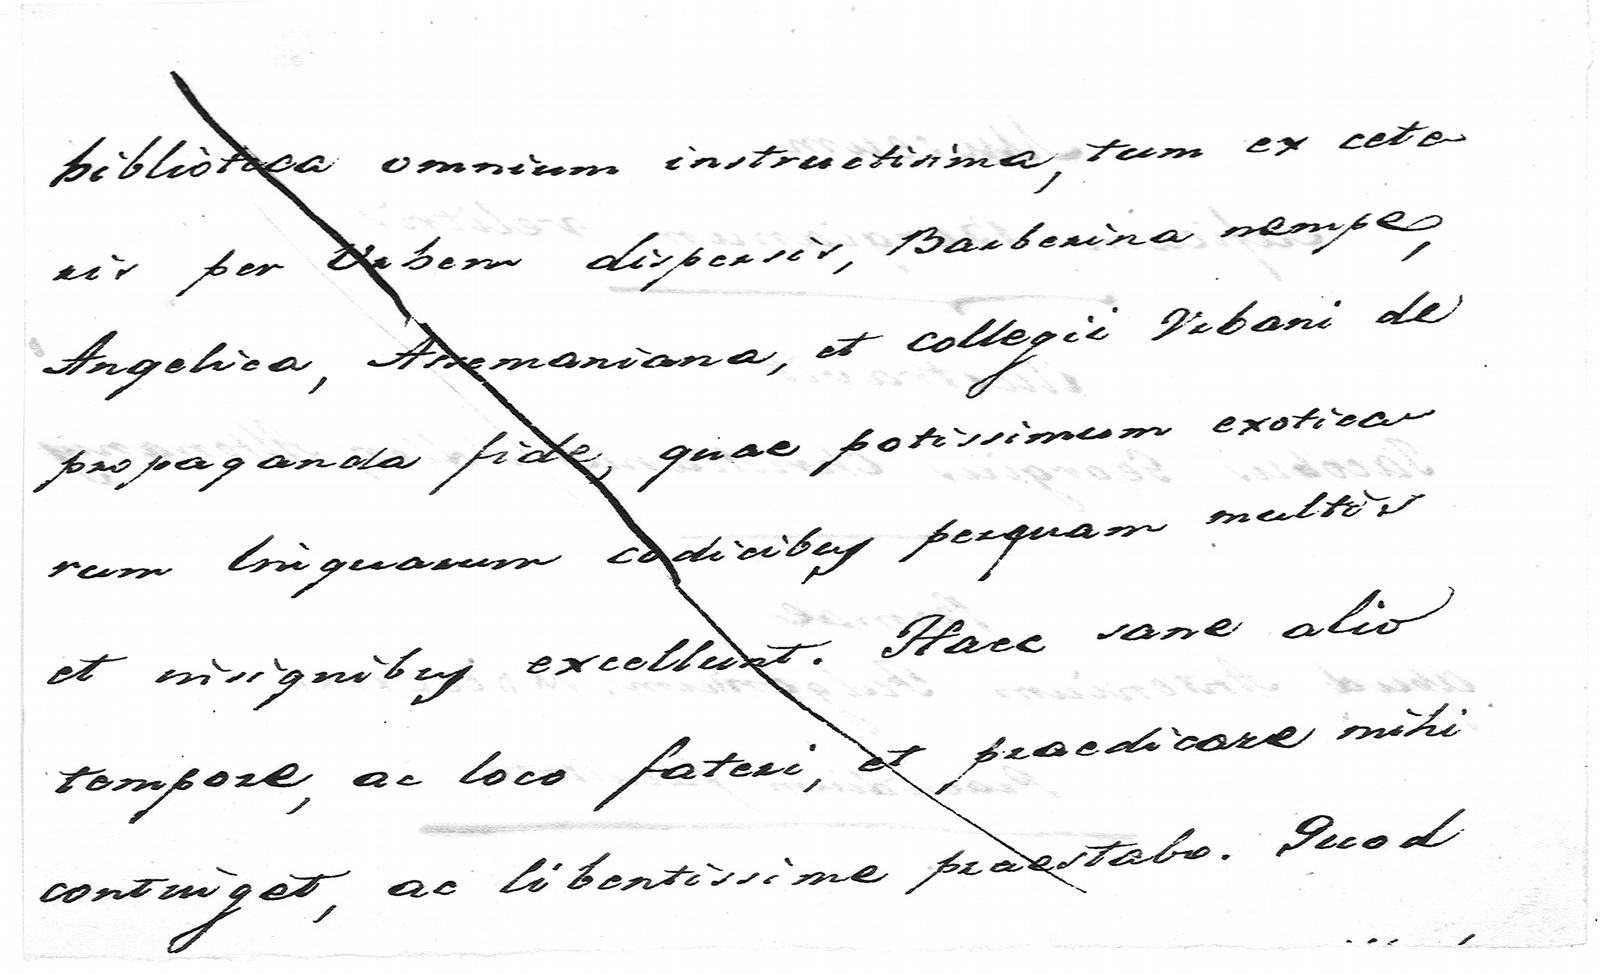 biblioteca omnium instructisima, tum ex cete
ris per Urbem dispersis, Barberina nempe,
Angelica, Assemaniana, et collegii Urbani de
propaganda fide, quae potissimum exotica
rum linquarum codicibus perquam multis
et insignibus excellunt. Haec sane alio
tempore, ac loco fateri, et praedicare mihi
continget, ac libentissime praestabo. Quod